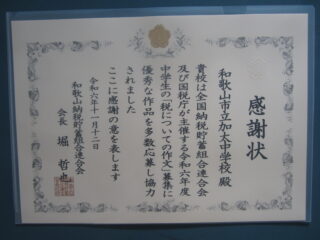 感謝状
和歌山市立加太中学校 殿
貴校は全国納税貯蓄組合連合会
及び国税庁が主催する令和六年度
中学生の「税についての作文」募集に
優秀な作品を多数応募し協力
されました
ここに感謝の意を表します
令和六年十一月十二日
和歌山納税貯蓄組合連合会
会長 堀 哲也